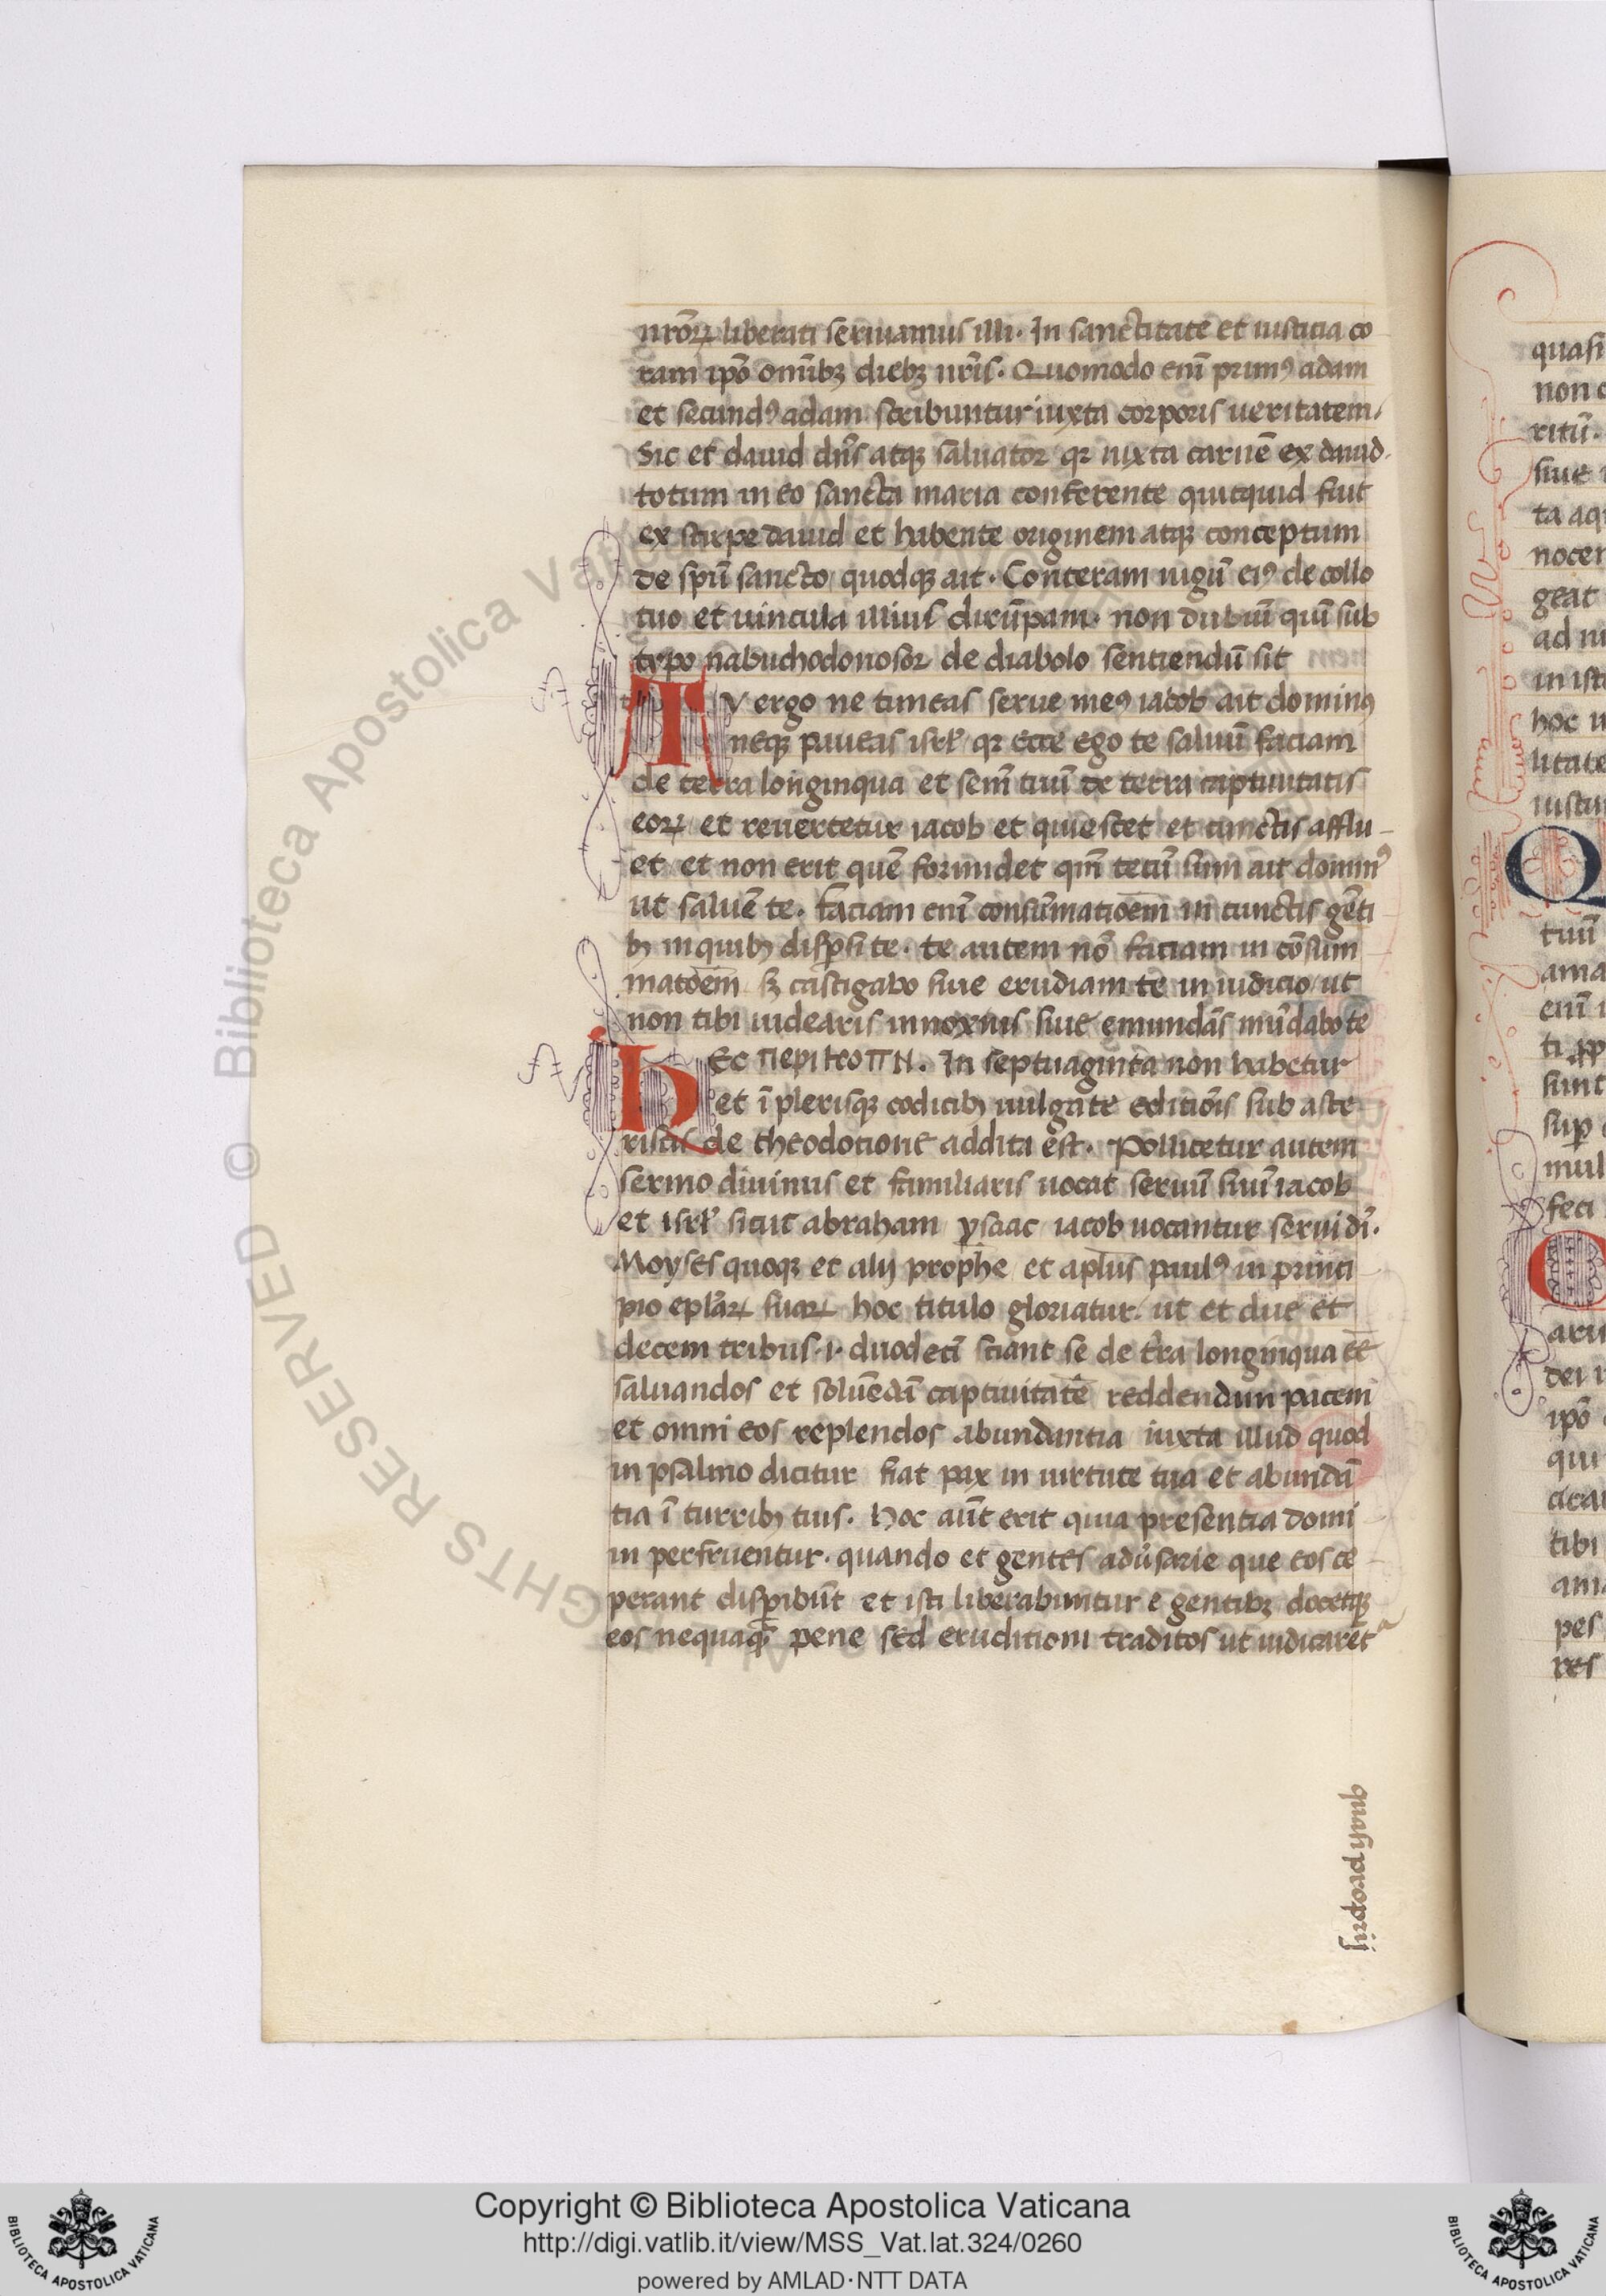 nr̄oꝝ liberati seruiamus illi. In sanctitate et iusticia co
ram ip̄o om̄ibꝫ diebꝫ nr̄is. Quomodo enī primꝯ adam
et secundꝯ adam scribuntur iuxta corporis ueritatem /
Sic et dauid dn̄s atqꝫ saluator qꝛ iuxta carnē ex dauid.
totum in eo sancta maria conferente quitquid fuit
ex stirpe dauid et habente originem atqꝫ conceptum
de spū sancto quodqꝫ ait. Conteram iugū eiꝯ de collo
tuo et uincula illius dirūpam. non dubiū quī sub
tipo nabuchodonosor de diabolo sentiendū sit
TV ergo ne timeas serue meꝯ iacob ait dominꝯ
neqꝫ paueas isrl̄ qꝛ ecce ego te saluū faciam
de terra longinqua et sem̄ tuū de terra captiuitatis
eoꝝ et reuertetur iacob et quiescet et cunctis afflu-
et et non erit quē formidet qm̄ tecū sum ait dominꝯ
ut saluē te. Faciam enī consūmatioēm in cunctis gēti
bꝫ in quibꝫ disꝑsi te. te autem nō faciam in cōsum
matōem sꝫ castigabo siue erudiam te in iudicio ut
non tibi uidearis innoxius siue emundās mūdabo te
hEc περιkοπη. In septuaginta non habetur
et ī plerisqꝫ codicibꝫ uulgate editiōis sub aste
riscis de theodotione addita est. Pollicetur autem
sermo diuinus et familiaris uocat seruū suū iacob
et isrl̄ sicut abraham ysaac iacob uocantur serui dī.
Moyses quoqꝫ et alij prophe et apl̄us paulꝯ in princi
pio epl̄aꝝ suaꝝ hoc titulo gloriatur. ut et due et
decem tribus .i. duodecī sciant se de t̄ra longinqua eē
saluandos et soluēdā captiuitatē reddendum pacem
et omni eos replendos abundantia iuxta illud quod
in psalmo dicitur fiat pax in uirtute tua et abundā
tia ī turribꝫ tuis. Hoc aūt erit quia presentia domi
ni perfruentur. quando et gentes adūsarie que eos ce
perant disꝑibūt et isti liberabuntur e gentibꝫ docetqꝫ
eos nequaq̄ pene sed eruditioni traditos ut iudicarēt
quasi proprij
quasi
non
ritū.
siue
ta aq
nocen
geat
ad
in ist
hoc
litate
Q
tuū
ama
enī
sunt
suꝑ
mul
feci
dei
ip̄o
qui
tibi
pes
res
Copyright © Biblioteca Apostolica Vaticana
http://digi.vatlib.it/view/MSS_Vat.lat.324/0260
powered by AMLAD·NTT DATA
BIBLIOTECA APOSTOLICA VATICANA
BIBLIOTECA APOSTOLICA VATICANA